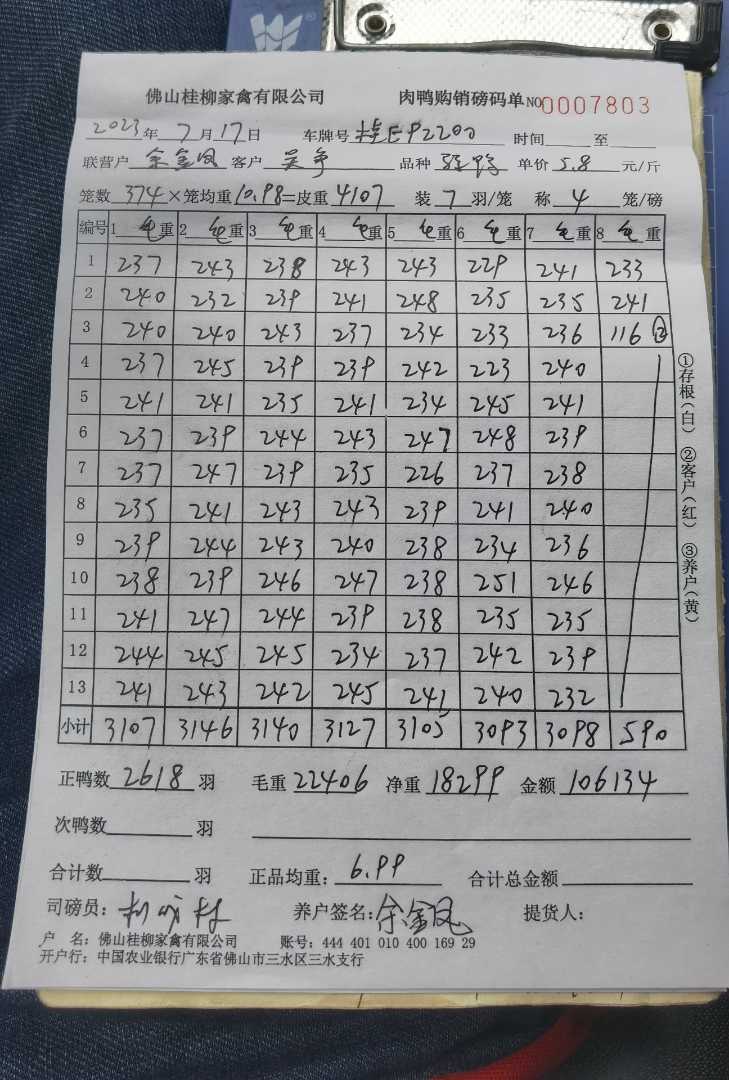 佛山桂柳家禽有限公司 肉鸭购销磅码单 NO 0007803
2023年 7月17日 车牌号 桂E92200 时间 至
联营户 余金凤 客户 吴争 品种 单价 5.8 元/斤
笼数 374 ×笼均重 10.98 =皮重 4107 装 7 羽/笼 称 4 笼/磅
编号 1毛重 2毛重 3毛重 4毛重 5毛重 6毛重 7毛重 8毛重
1 237 243 238 243 243 229 241 233
2 240 232 239 241 248 235 235 241
3 240 240 243 237 234 233 236 116 ②
4 237 245 239 239 242 223 240
5 241 241 235 241 234 245 241
6 237 239 244 243 247 248 239
7 237 247 239 235 226 237 238
8 235 241 243 243 239 241 240
9 239 244 243 240 238 234 236
10 238 239 246 247 238 251 246
11 241 247 244 239 238 235 235
12 244 245 245 234 237 242 239
13 241 243 242 245 241 240 232
小计 3107 3146 3140 3127 3105 3093 3098 590
①存根(白) ②客户(红) ③养户(黄)
正鸭数 2618 羽 毛重 22406 净重 18299 金额 106134
次鸭数 羽
合计数 羽 正品均重: 6.99 合计总金额
司磅员: 养户签名: 余金凤 提货人:
户 名: 佛山桂柳家禽有限公司 账号: 444 401 010 400 169 29
开户行: 中国农业银行广东省佛山市三水区三水支行